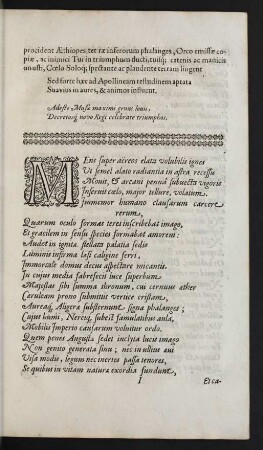 procident Æthiopes, tetræ inferorum phalanges, Orco emissæ co-
piæ, ac inimici Tui in triumphum ducti, tuisq; catenis ac manicis
onusti, Cœlo Soloq; spectante ac plaudente terram lingent
Sed forte hæc ad Apollineam testudinem aptata
Suavius in aures, & animos influent.
Adeste Musæ maximi proles Iovis,
Decretosq; novo Regi celebrate triumphos.
MEns super aëreos elata volubilis ignes
Ut semel alato radiantia in astra recessu
Movit, & arcani pennâ subvecta vigoris
Inseruit cælo, major tellure, volatum
Immemor humano clausarum carcere
rerum,
Quarum oculo formas teres inscribebat imago,
Et gracilem in sensu species formabat amorem:
Audet in ignita stellata palatia sedis
Luminis infirma lese caligine ferri,
Immortale domus decus aspectare micantis.
In cujus media subrefecit luce superbum
Majestas sibi summa thronum, cui cernuus æther
Cæruleam prono submittit vertice cristam,
Aureaq; Aligeræ substernunt signa phalanges;
Cujus humi, Nereiq; subest famulatibus aula,
Mobilis Imperio causarum volvitur ordo.
Quem penes Augusta sedet inclyta lucis imago
Non genito generata sinu; nec in ullius avi
Visa modis, legum nec inertes passa tenores,
Se quibus in vitam natura exordia fundunt,
I
Et ca-